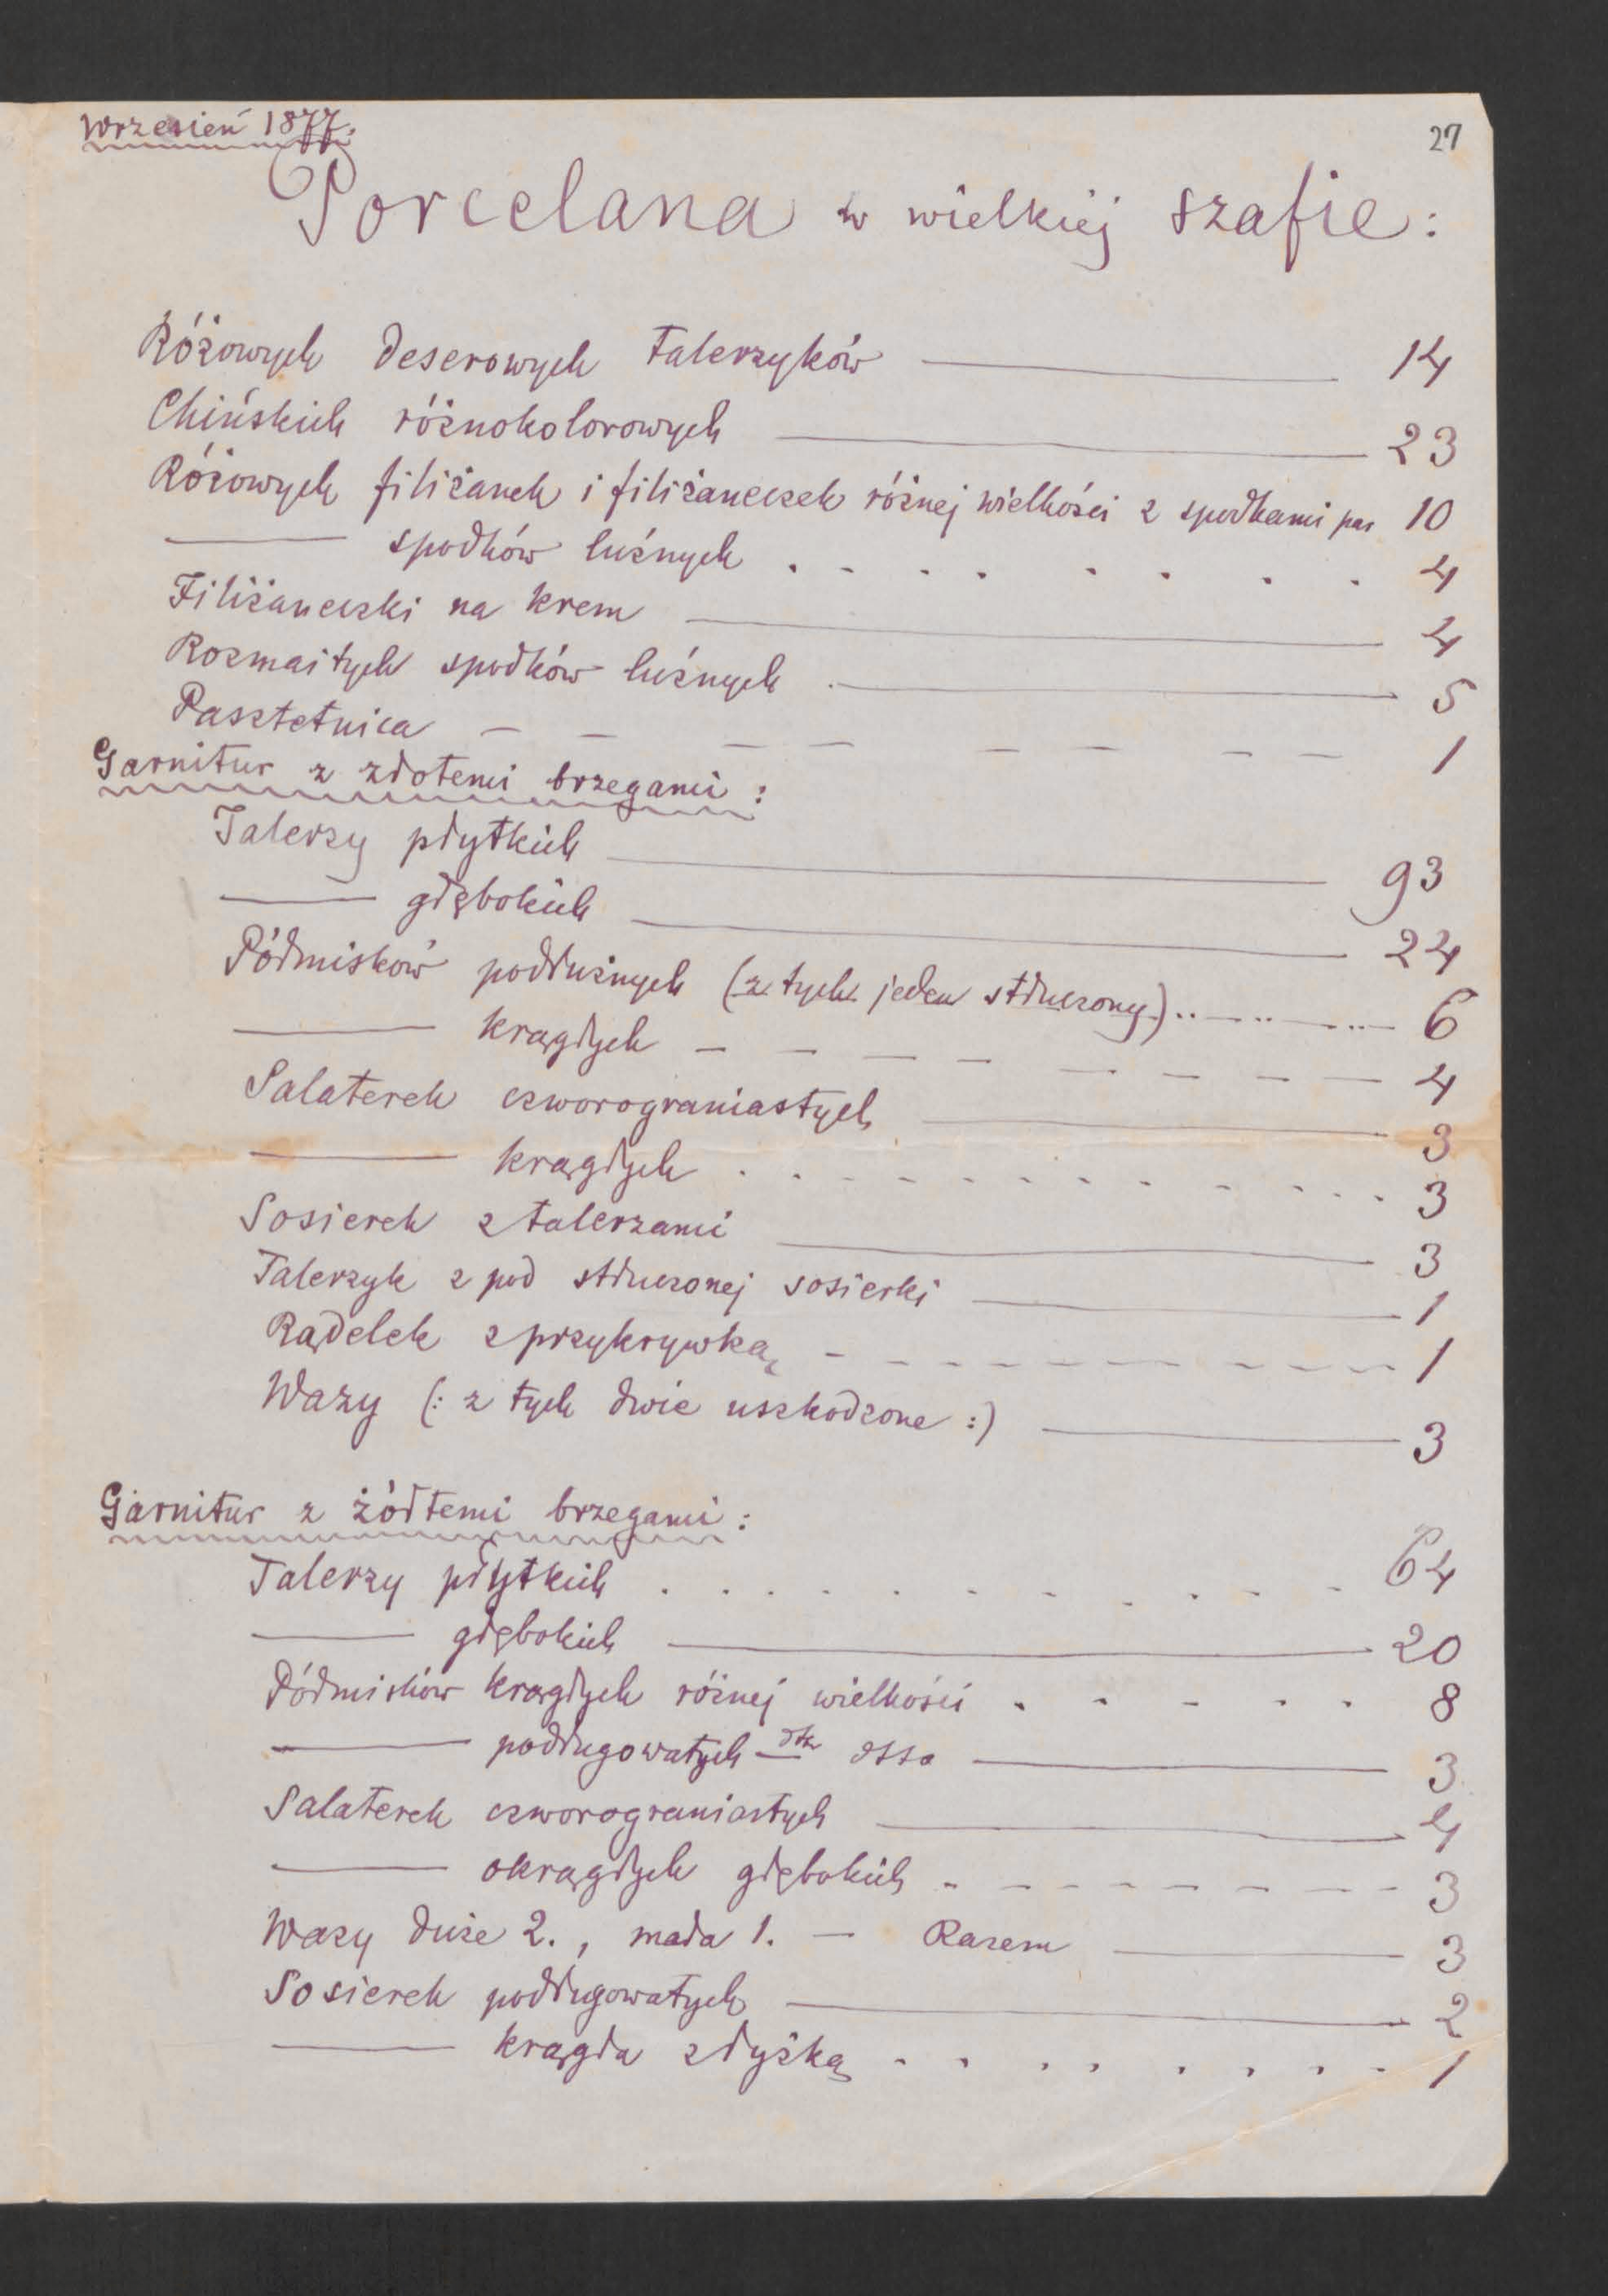 Wrzesień 1877.
27
Porcelana w wielkiéj szafie:
Różowych deserowych talerzyków 14
Chińskich różnokolorowych 23
Różowych filiżanek i filiżaneczek różnej wielkości z spodkami par 10
— spodków luźnych . . . . . . . . 4
Filiżaneczki na krem 4
Rozmaitych spodków luźnych 5
Pasztetnica — — — — — — — — — 1
Garnitur z złotemi brzegami:
Talerzy płytkich 93
— głębokich 24
Półmisków podłużnych (z tych jeden stłuczony) 6
— krągłych — — — — — — — — 4
Salaterek czworograniastych 3
— krągłych . . . . . . . . . . . . 3
Sosierek z talerzami 3
Talerzyk z pod stłuczonej sosierki 1
Rądelek z przykrywką - - - - - - - - - 1
Wazy (: z tych dwie uszkodzone :) 3
Garnitur z żółtemi brzegami:
Talerzy płytkich . . . . . . . . . . 64
— głębokich 20
Półmisków krągłych różnej wielkości . . . . . 8
— podługowatych 3
Salaterek czworograniastych 4
— okrągłych głębokich - - - - - - - - 3
Wazy duże 2., mała 1. — Razem 3
Sosierek podługowatych 2
— krągła z łyżką . . . . . . . . 1